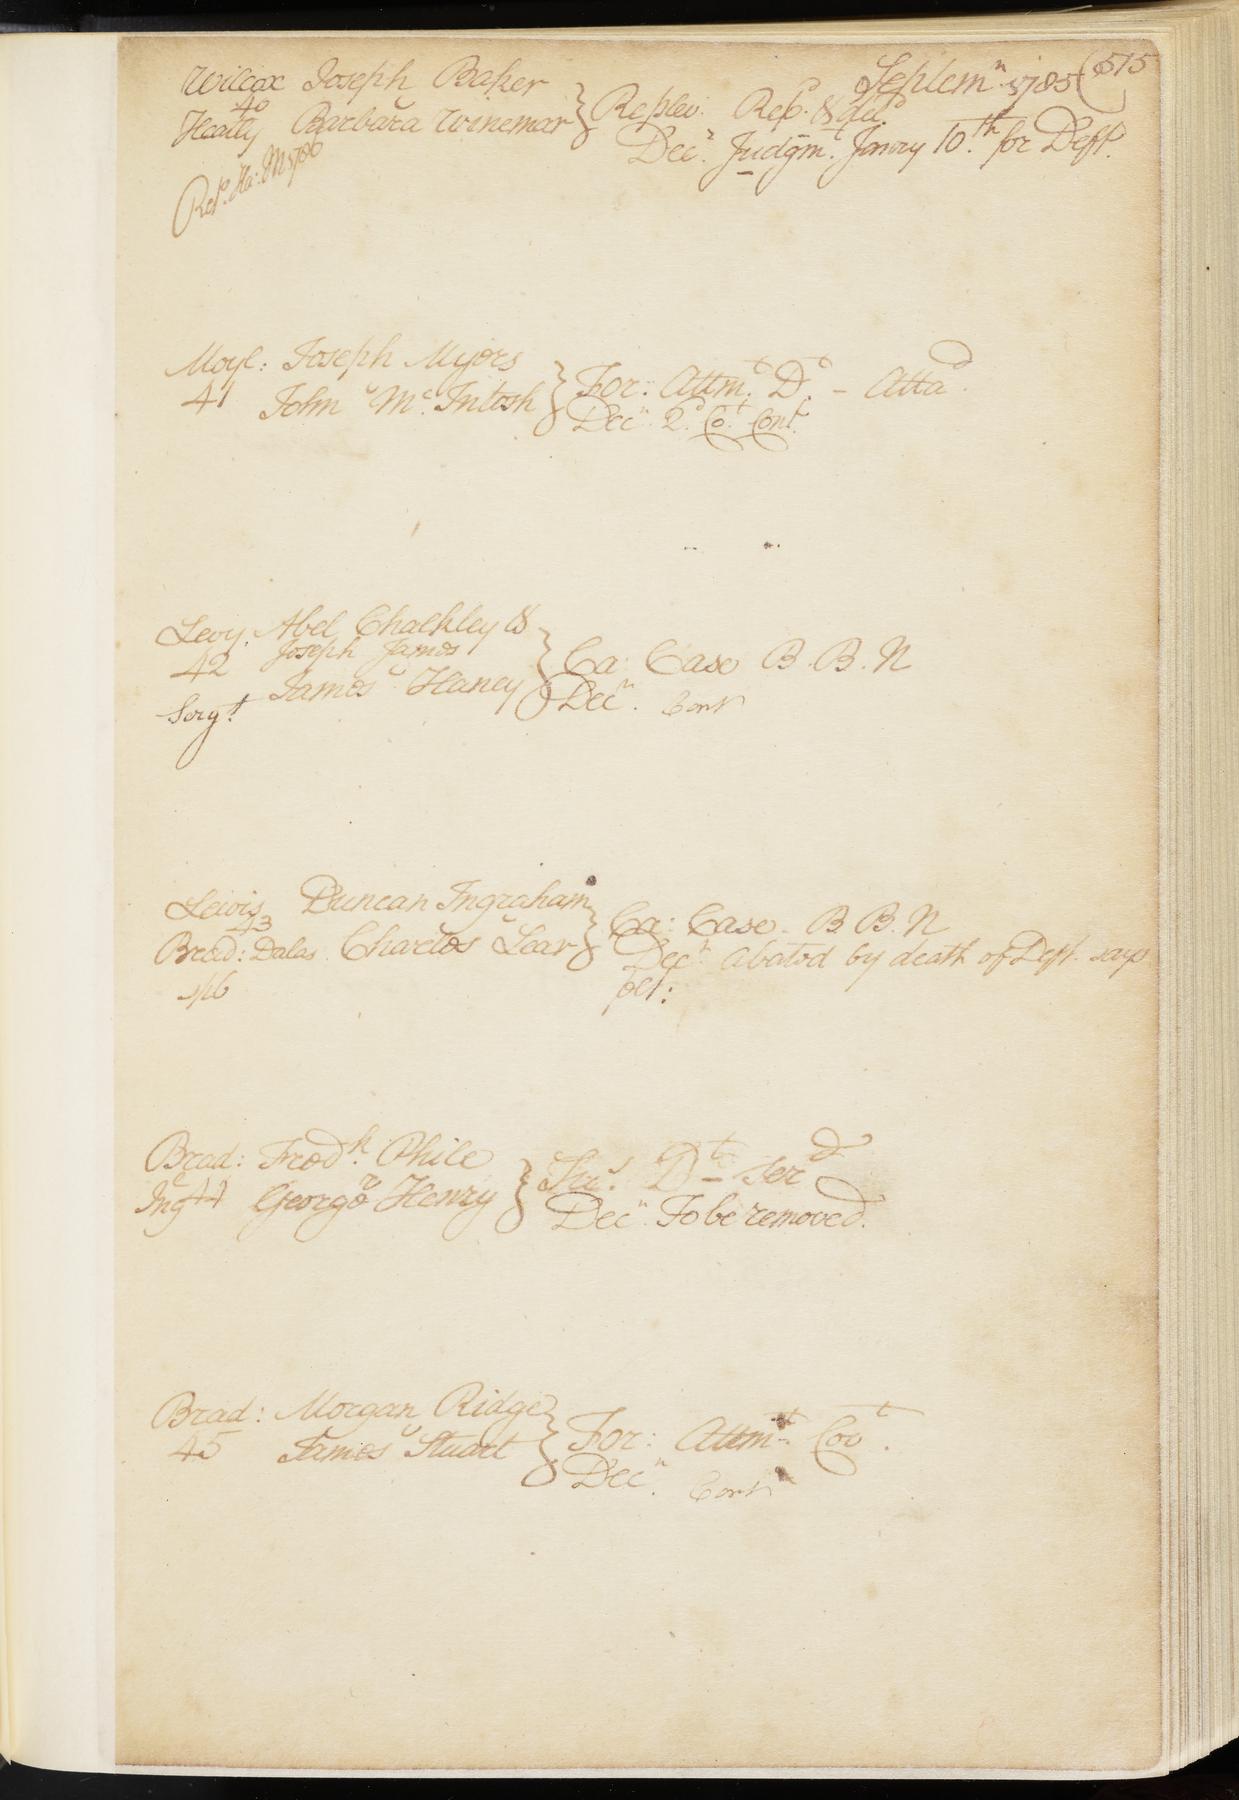 Septem.r 1785 (515
Wilcox Joseph Baker
40 v
Heatly Barbara Winemar } Replev: Rep.d &
Dec.r Judgm.t Janry 10.th for Deft.
Ret.d Ha: M 1786
Moyl: Joseph Myers
41 v
John McIntosh } For: Attm.t D.t - Atta.d
Dec.r 2.d Co.t Cont.
Levy. Abel Chalkley &
42 Joseph James
v
Serg.t James Haney } Ca: Case B. B. N
Dec.r Cont
Lewis Duncan Ingraham
43 v
Brad: Dalas Charles Lear } Ca: Case. B. B. N
Dec.r abated by death of Deft. says
Brad: Fred.k Phile
v
Ing 44 George Henry } D.t - Ser.d
Dec.r To be removed.
Brad: Morgan Ridge
45 v
James Stuart } For: Attm.t Cov.t
Dec.r Cont